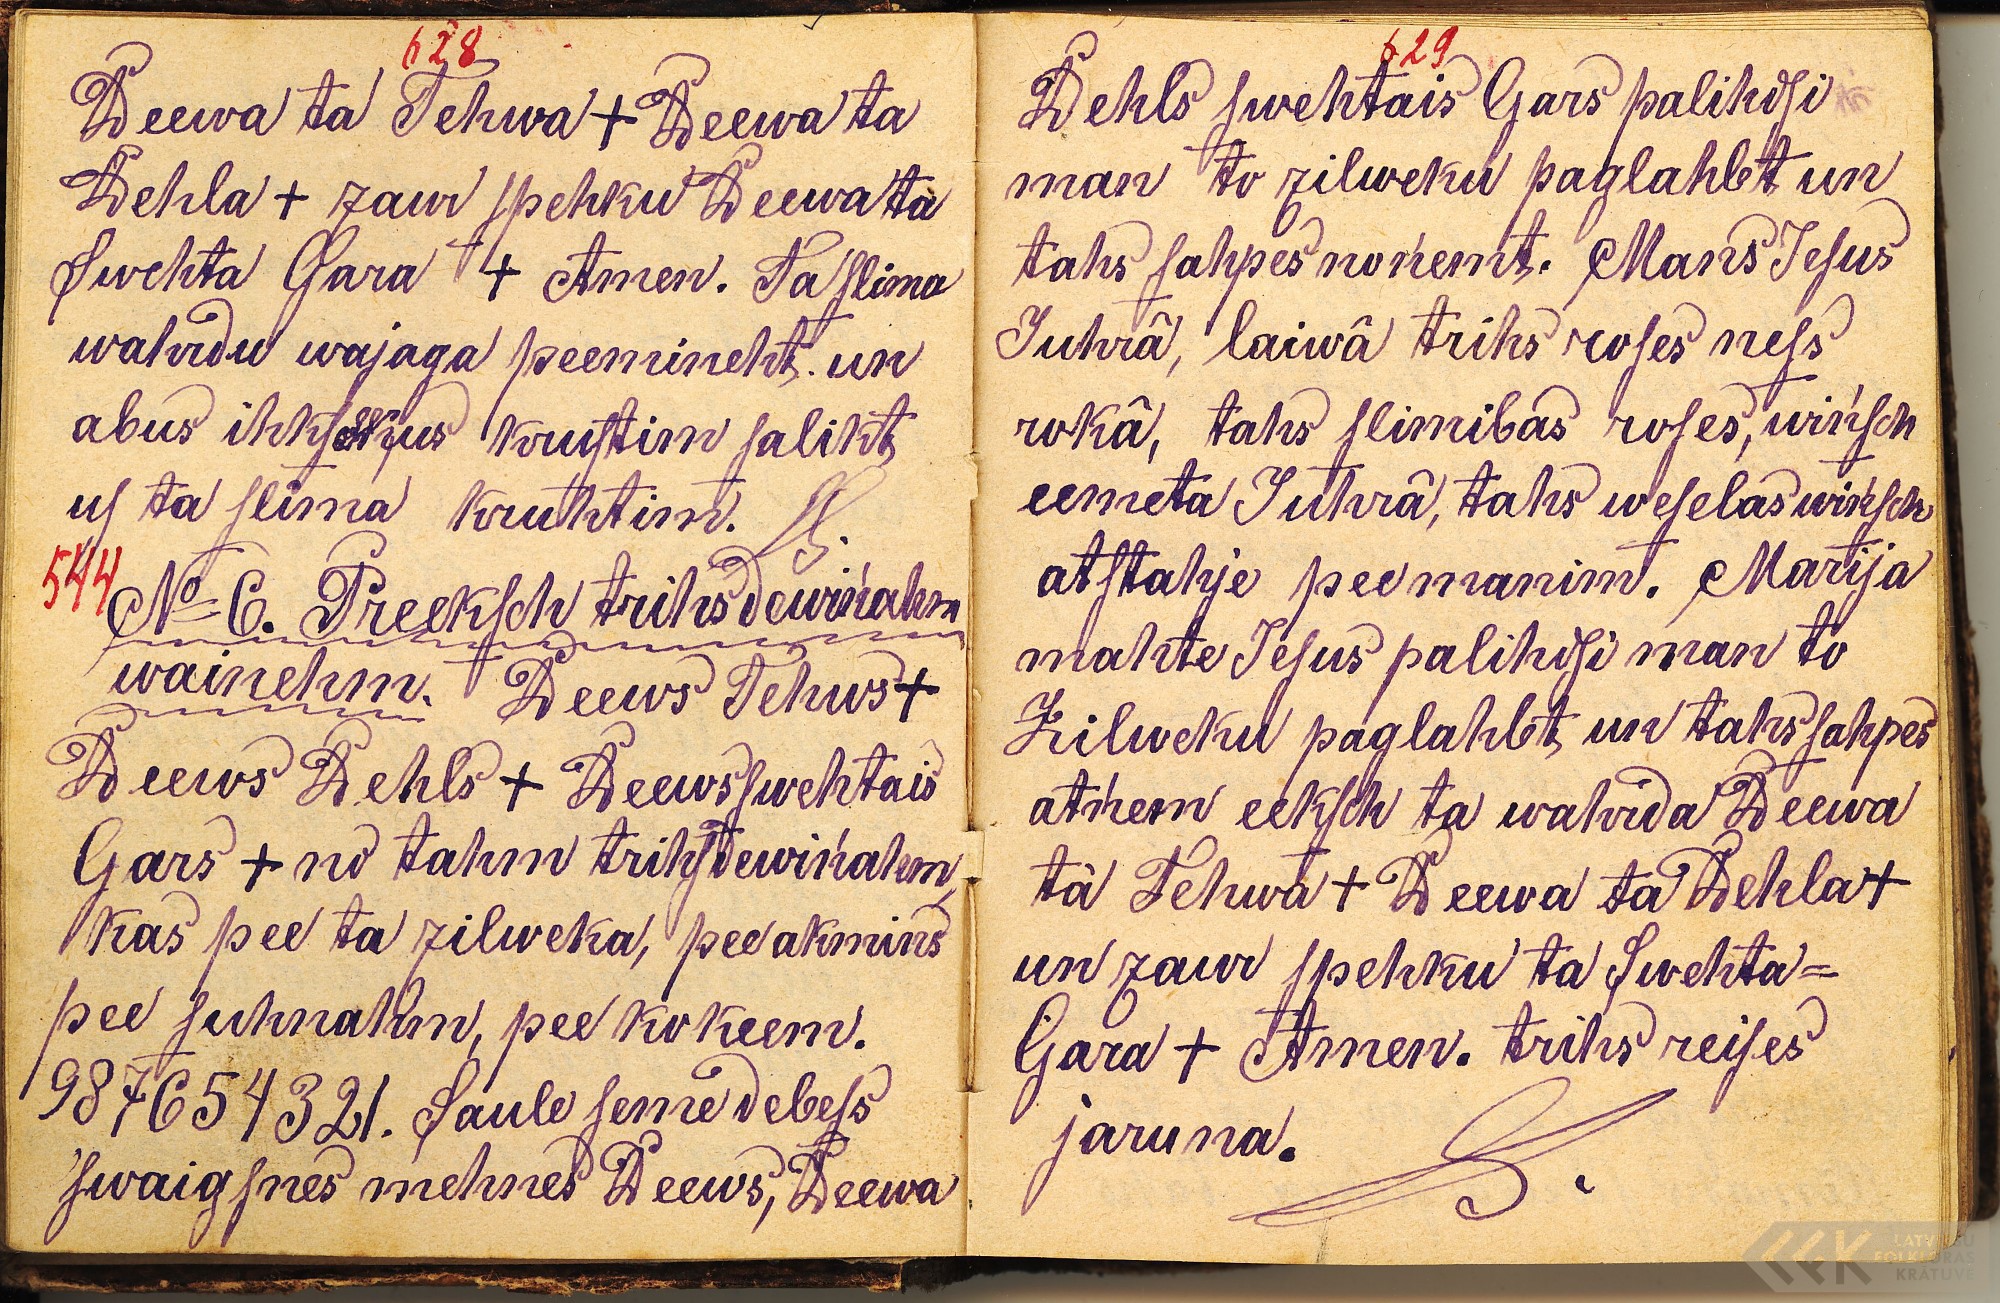 628
Deewa ta Tehwa + Deewa ta
Dehla + zaur spehku Deewa ta
Swehta Gara + Amen. Ta slima
wahrdu wajaga peemineht. un
abus ihkschkus krustim salikt
us ta slima kruhtim.
544
№ 6. Preeksch trihsdewińahm
wainehm. Deews Tehws +
Deews Dehls + Deews swehtais
Gars + no tahm trihsdewińahm,
kas pee ta zilweka, pee akmins
pee suhnahm, pee kokeem.
987654321. Saule seme debess
swaigsnes mehnes Deews, Deewa
629
Dehls swehtais Gars palihdsi
man to zilweku paglahbt un
tahs sahpes nońemt. Mans Jesus
Juhrâ, laiwâ trihs roses ness
rokâ, tahs slimibas roses, wińsch
eemeta Juhrâ, tahs weselas wińsch
atstahje pee manim. Marija
mahte Jesus palihdsi man to
Zilweku paglahbt un tahs sahpes
atńem eeksch ta wahrda Deewa
tà Tehwa + Deewa ta Dehla +
un zaur spehku ta Swehta=
Gara + Amen. trihs reises
jaruna.
LATVIEŠU
FOLKLORAS
KRĀTUVE